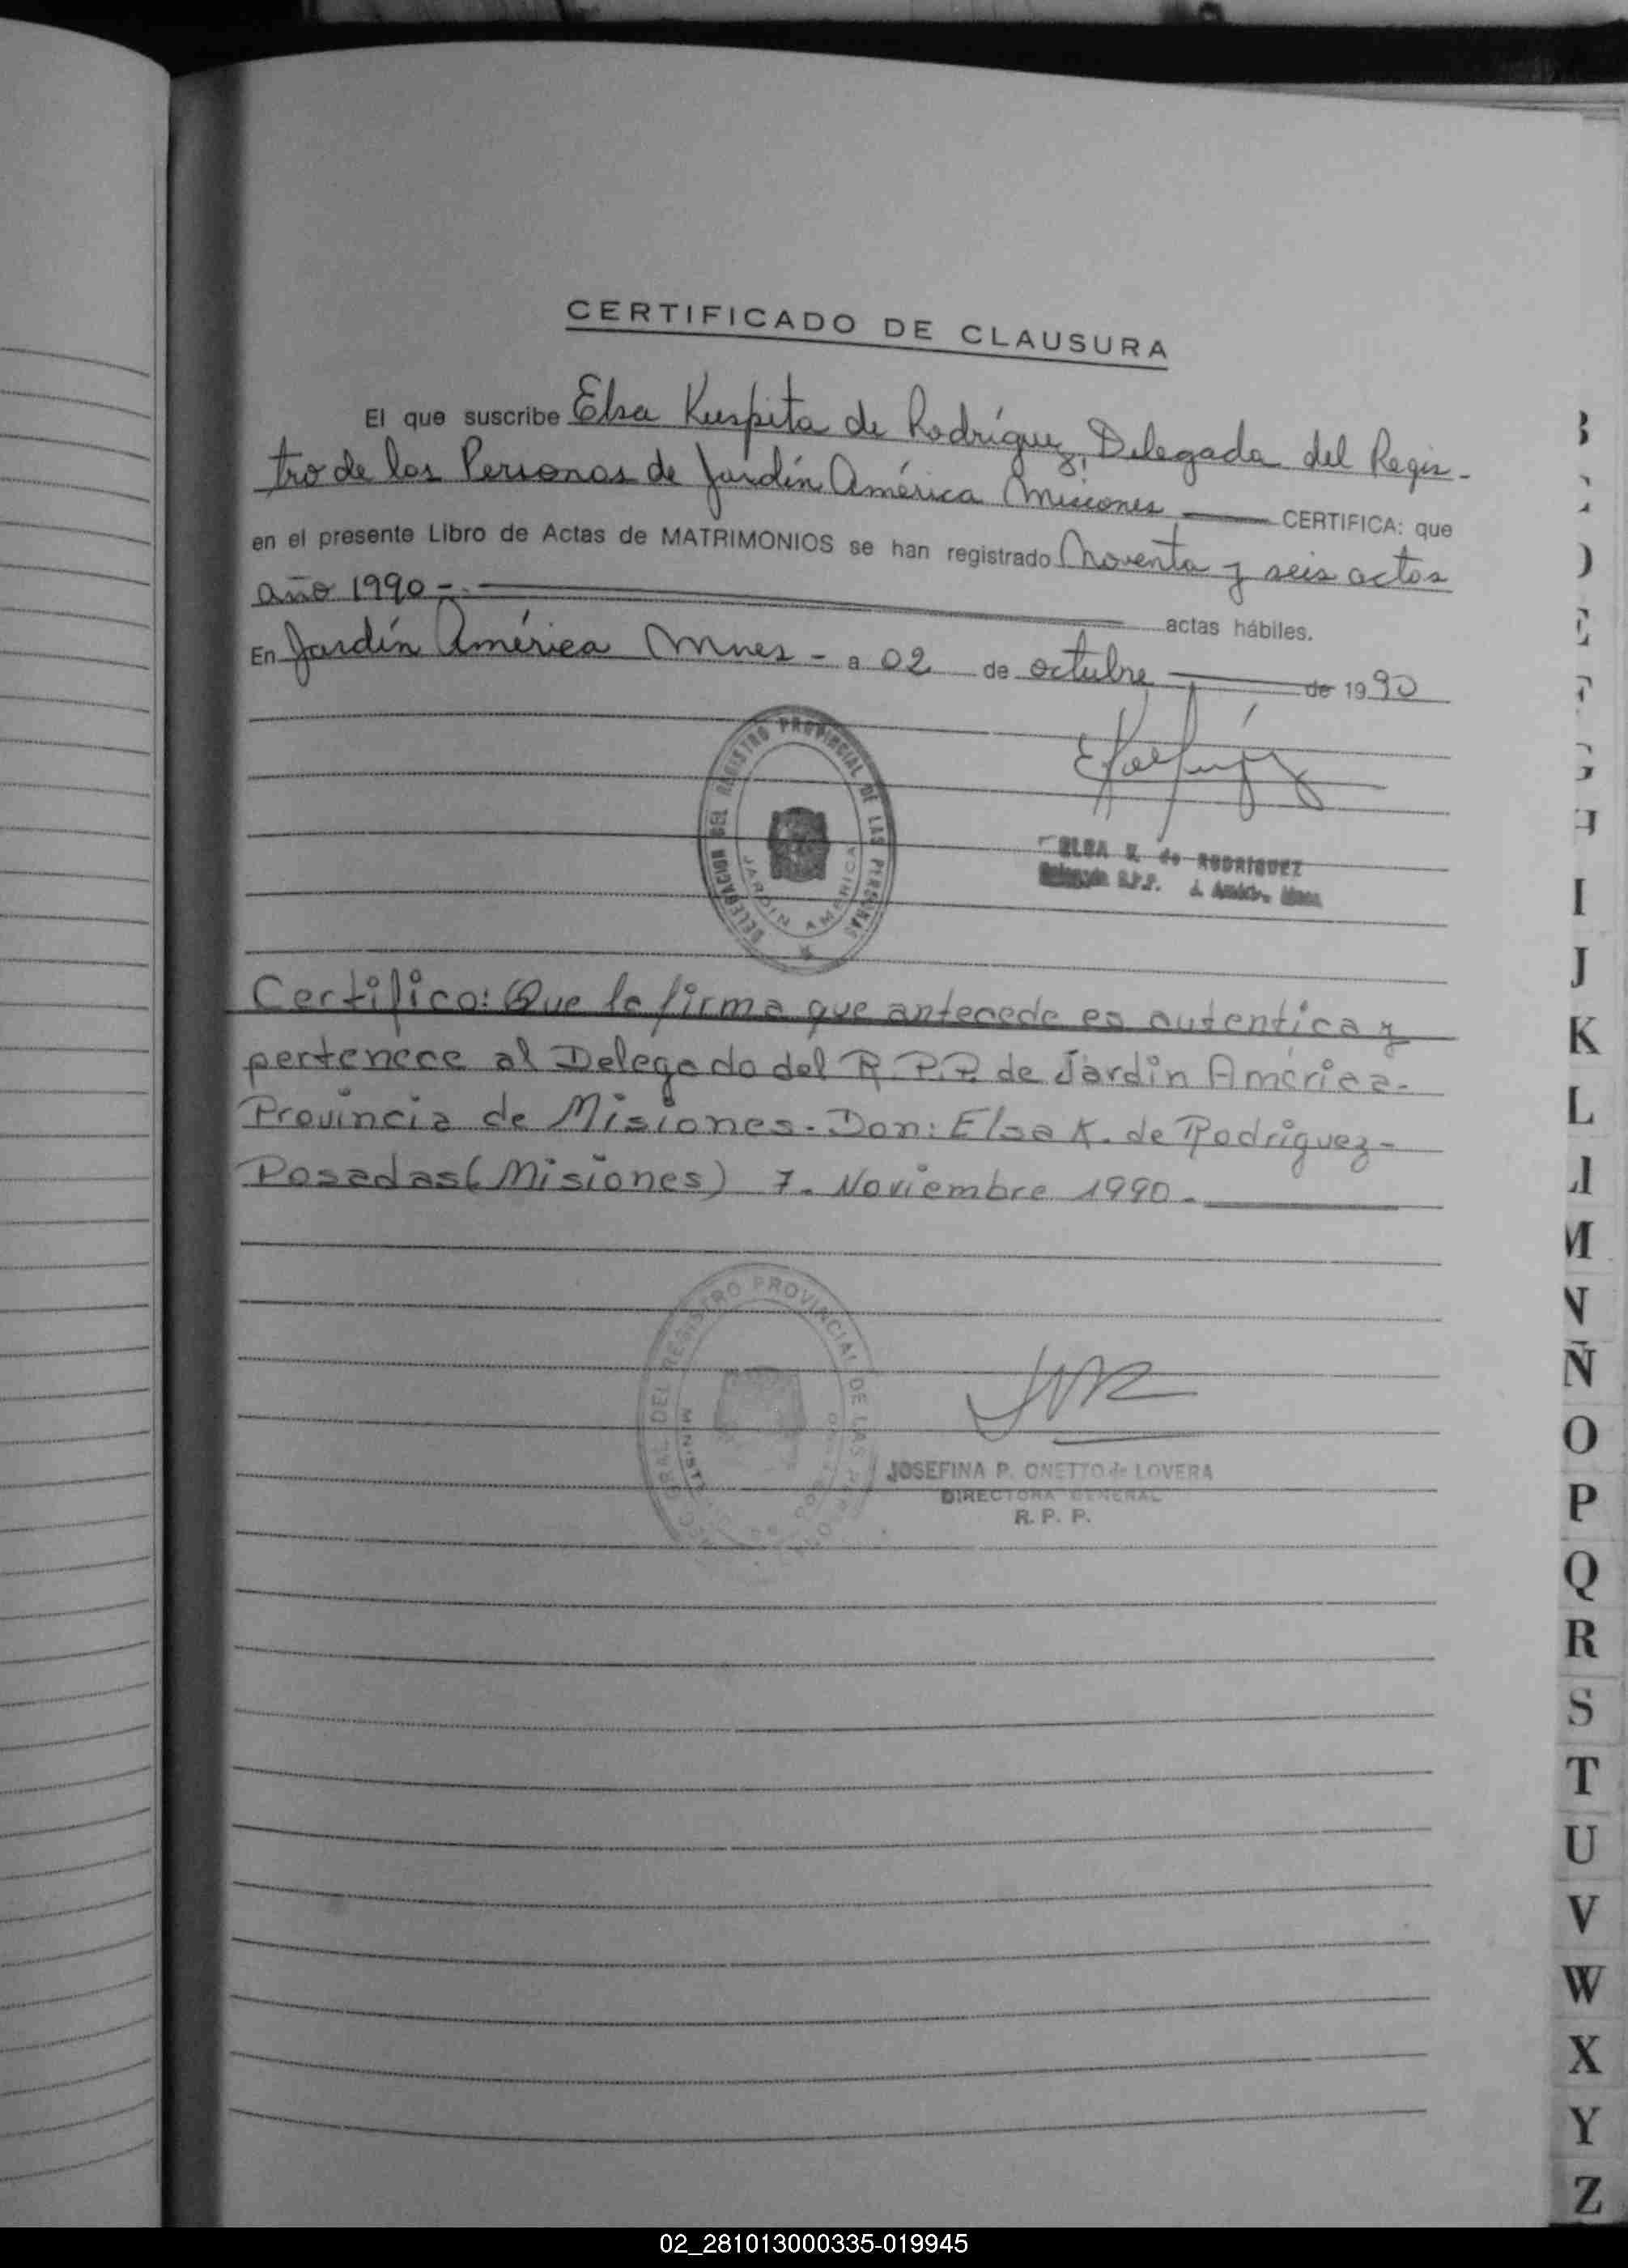 CERTIFICADO DE CLAUSURA
El que suscribe Elsa Kuspita de Rodríguez, Delegada del Regis-
tro de las Personas de Jardín América Misiones CERTIFICA: que
en el presente Libro de Actas de MATRIMONIOS se han registrado Noventa y seis actas
año 1990 -. actas hábiles.
En Jardín América Mnes - a 02 de octubre de 1990
DELEGACION DEL REGISTRO PROVINCIAL DE LAS PERSONAS
JARDIN AMERICA
ELSA K. de RODRIGUEZ
Delegada R.P.P. J. América Mnes.
Certifico: Que la firma que antecede es autentica y
pertenece al Delegado del R.P.P. de Jardín América-
Provincia de Misiones. Don: Elsa K. de Rodriguez-
Posadas (Misiones) 7. Noviembre 1990.
DEL REGISTRO PROVINCIAL DE LAS
JOSEFINA P. ONETTO de LOVERA
DIRECTORA GENERAL
R. P. P.
G
I
J
K
L
Ll
M
N
Ñ
O
P
Q
R
S
T
U
V
W
X
Y
Z
02_281013000335-019945